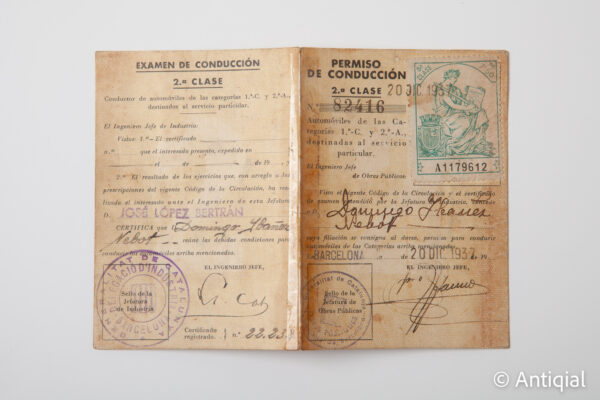 EXAMEN DE CONDUCCIÓN
2.ª CLASE
Conductor de automóviles de las categorías 1.ª-C. y 2.ª-A.,
destinados al servicio particular.
El Ingeniero Jefe de Industria:
Visto: 1.º - El certificado
n.º que el interesado presenta, expedido en
de de 19
2.º El resultado de los ejercicios que, con arreglo a las
prescripciones del vigente Código de la Circulación, ha rea-
lizado el interesado ante el Ingeniero de esta Jefatura
JOSÉ LÓPEZ BERTRÁN
CERTIFICA que Domingo Ibáñez
Nebot reúne las debidas condiciones para
conducir los automóviles arriba mencionados.
EL INGENIERO JEFE,
Sello de la
Jefatura
de Industria
BARCELONA
Certificado
registrado. n.º 22.23
PERMISO
DE CONDUCCIÓN
2.ª CLASE 20 DIC. 1937
N.º 82416
Automóviles de las Ca-
tegorías 1.ª-C. y 2.ª-A.,
destinadas al servicio
particular.
El Ingeniero Jefe
de Obras Públicas
A1179612
Visto el vigente Código de la Circulación y el certificado
de examen expedido por la Jefatura de Industria,
Domingo Ibáñez
Nebot
cuya filiación se consigna al dorso, permiso para conducir
Automóviles de las Categorías arriba mencionadas.
BARCELONA de 20 DIC. 1937 19
EL INGENIERO JEFE,
Sello de la
Jefatura de
Obras Públicas
© Antiqial